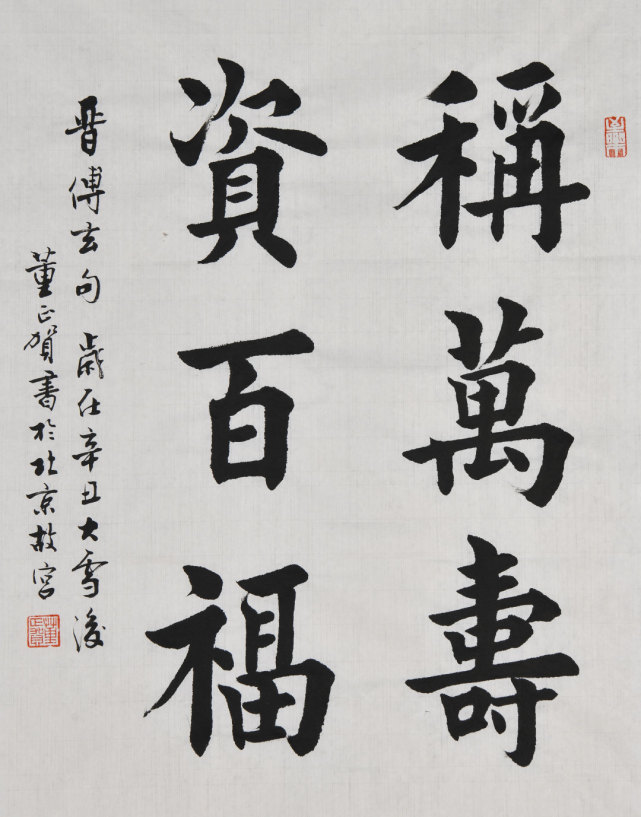 稱萬壽
資百福
晋傅玄句 歲在辛丑大雪後
董正賀書於北京故宮